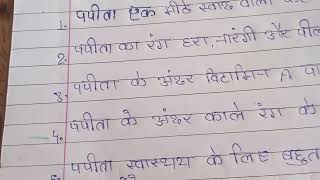 1. पपीता एक मीठे स्वाद वाला
2. पपीता का रंग हरा, नारंगी और
3. पपीता के अंदर विटामिन A
4. पपीता के अंदर काले रंग के
पपीता स्वास्थय के लिए बहुत